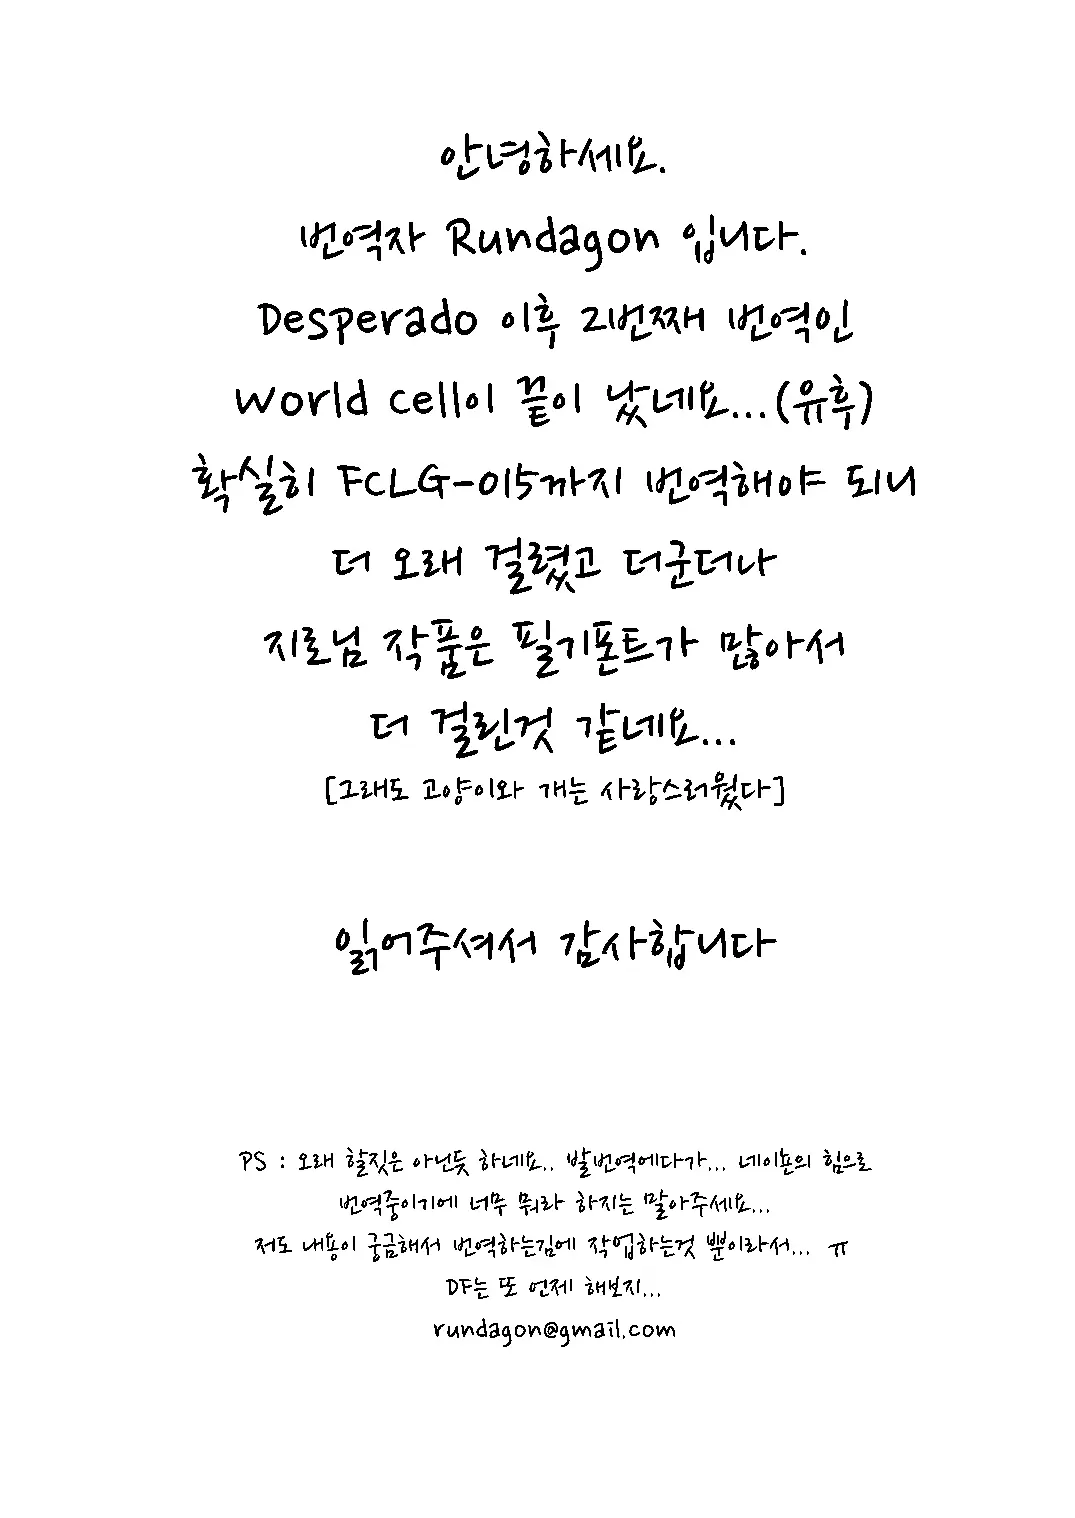 안녕하세요.
번역자 Rundagon 입니다.
Desperado 이후 2번째 번역인
World cell이 끝이 났네요...(유후)
확실히 FCLG-015까지 번역해야 되니
더 오래 걸렸고 더군더나
지로님 작품은 필기폰트가 많아서
더 걸린것 같네요...
[그래도 고양이와 개는 사랑스러웠다]
읽어주셔서 감사합니다
PS : 오래 할짓은 아닌듯 하네요.. 발번역에다가... 네이눈의 힘으로
번역중이기에 너무 뭐라 하지는 말아주세요...
저도 내용이 궁금해서 번역하는김에 작업하는것 뿐이라서... ㅠ
DF는 또 언제 해보지...
rundagon@gmail.com